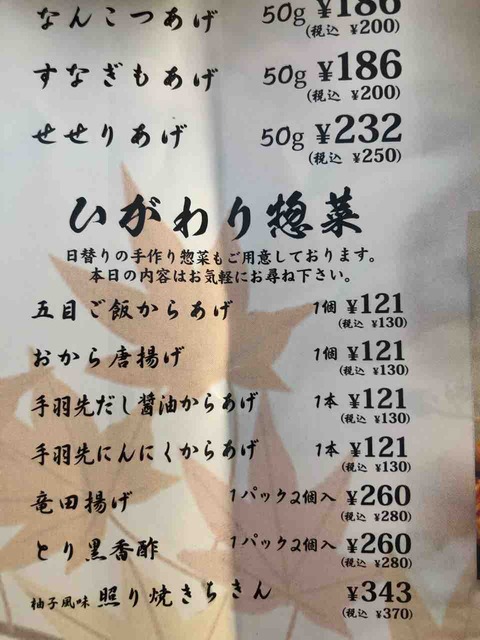 なんこつあげ 50g ¥186
(税込 ¥200)
すなぎもあげ 50g ¥186
(税込 ¥200)
せせりあげ 50g ¥232
(税込 ¥250)
ひがわり惣菜
日替りの手作り惣菜もご用意しております。
本日の内容はお気軽にお尋ね下さい。
五目ご飯からあげ 1個 ¥121
(税込 ¥130)
おから唐揚げ 1個 ¥121
(税込 ¥130)
手羽先だし醤油からあげ 1本 ¥121
(税込 ¥130)
手羽先にんにくからあげ 1本 ¥121
(税込 ¥130)
竜田揚げ 1パック2個入 ¥260
(税込 ¥280)
とり黒香酢 1パック2個入 ¥260
(税込 ¥280)
柚子風味 照り焼きちきん ¥343
(税込 ¥370)